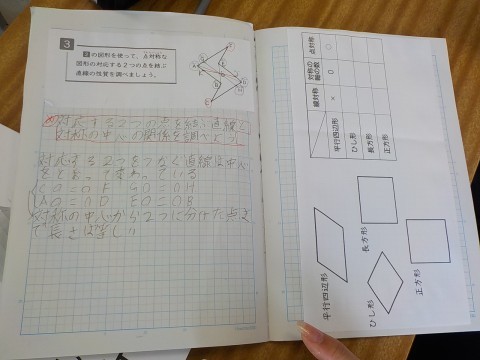 3
2の図形を使って、点対称な
図形の対応する2つの点を結ぶ
直線の性質を調べましょう。
対応する2つの点を結ぶ直線と
対称の中心の関係を調べよう
対応する2つをつなぐ直線は中心
をとおって
CO=OF GO=OH
AO=OD EO=OB
対称の中心から2つに分けた点ま
で長さは等しい
線対称 対称の軸の数 点対称
平行四辺形 × 0 ○
ひし形
長方形
正方形
平行四辺形
長方形
ひし形
正方形